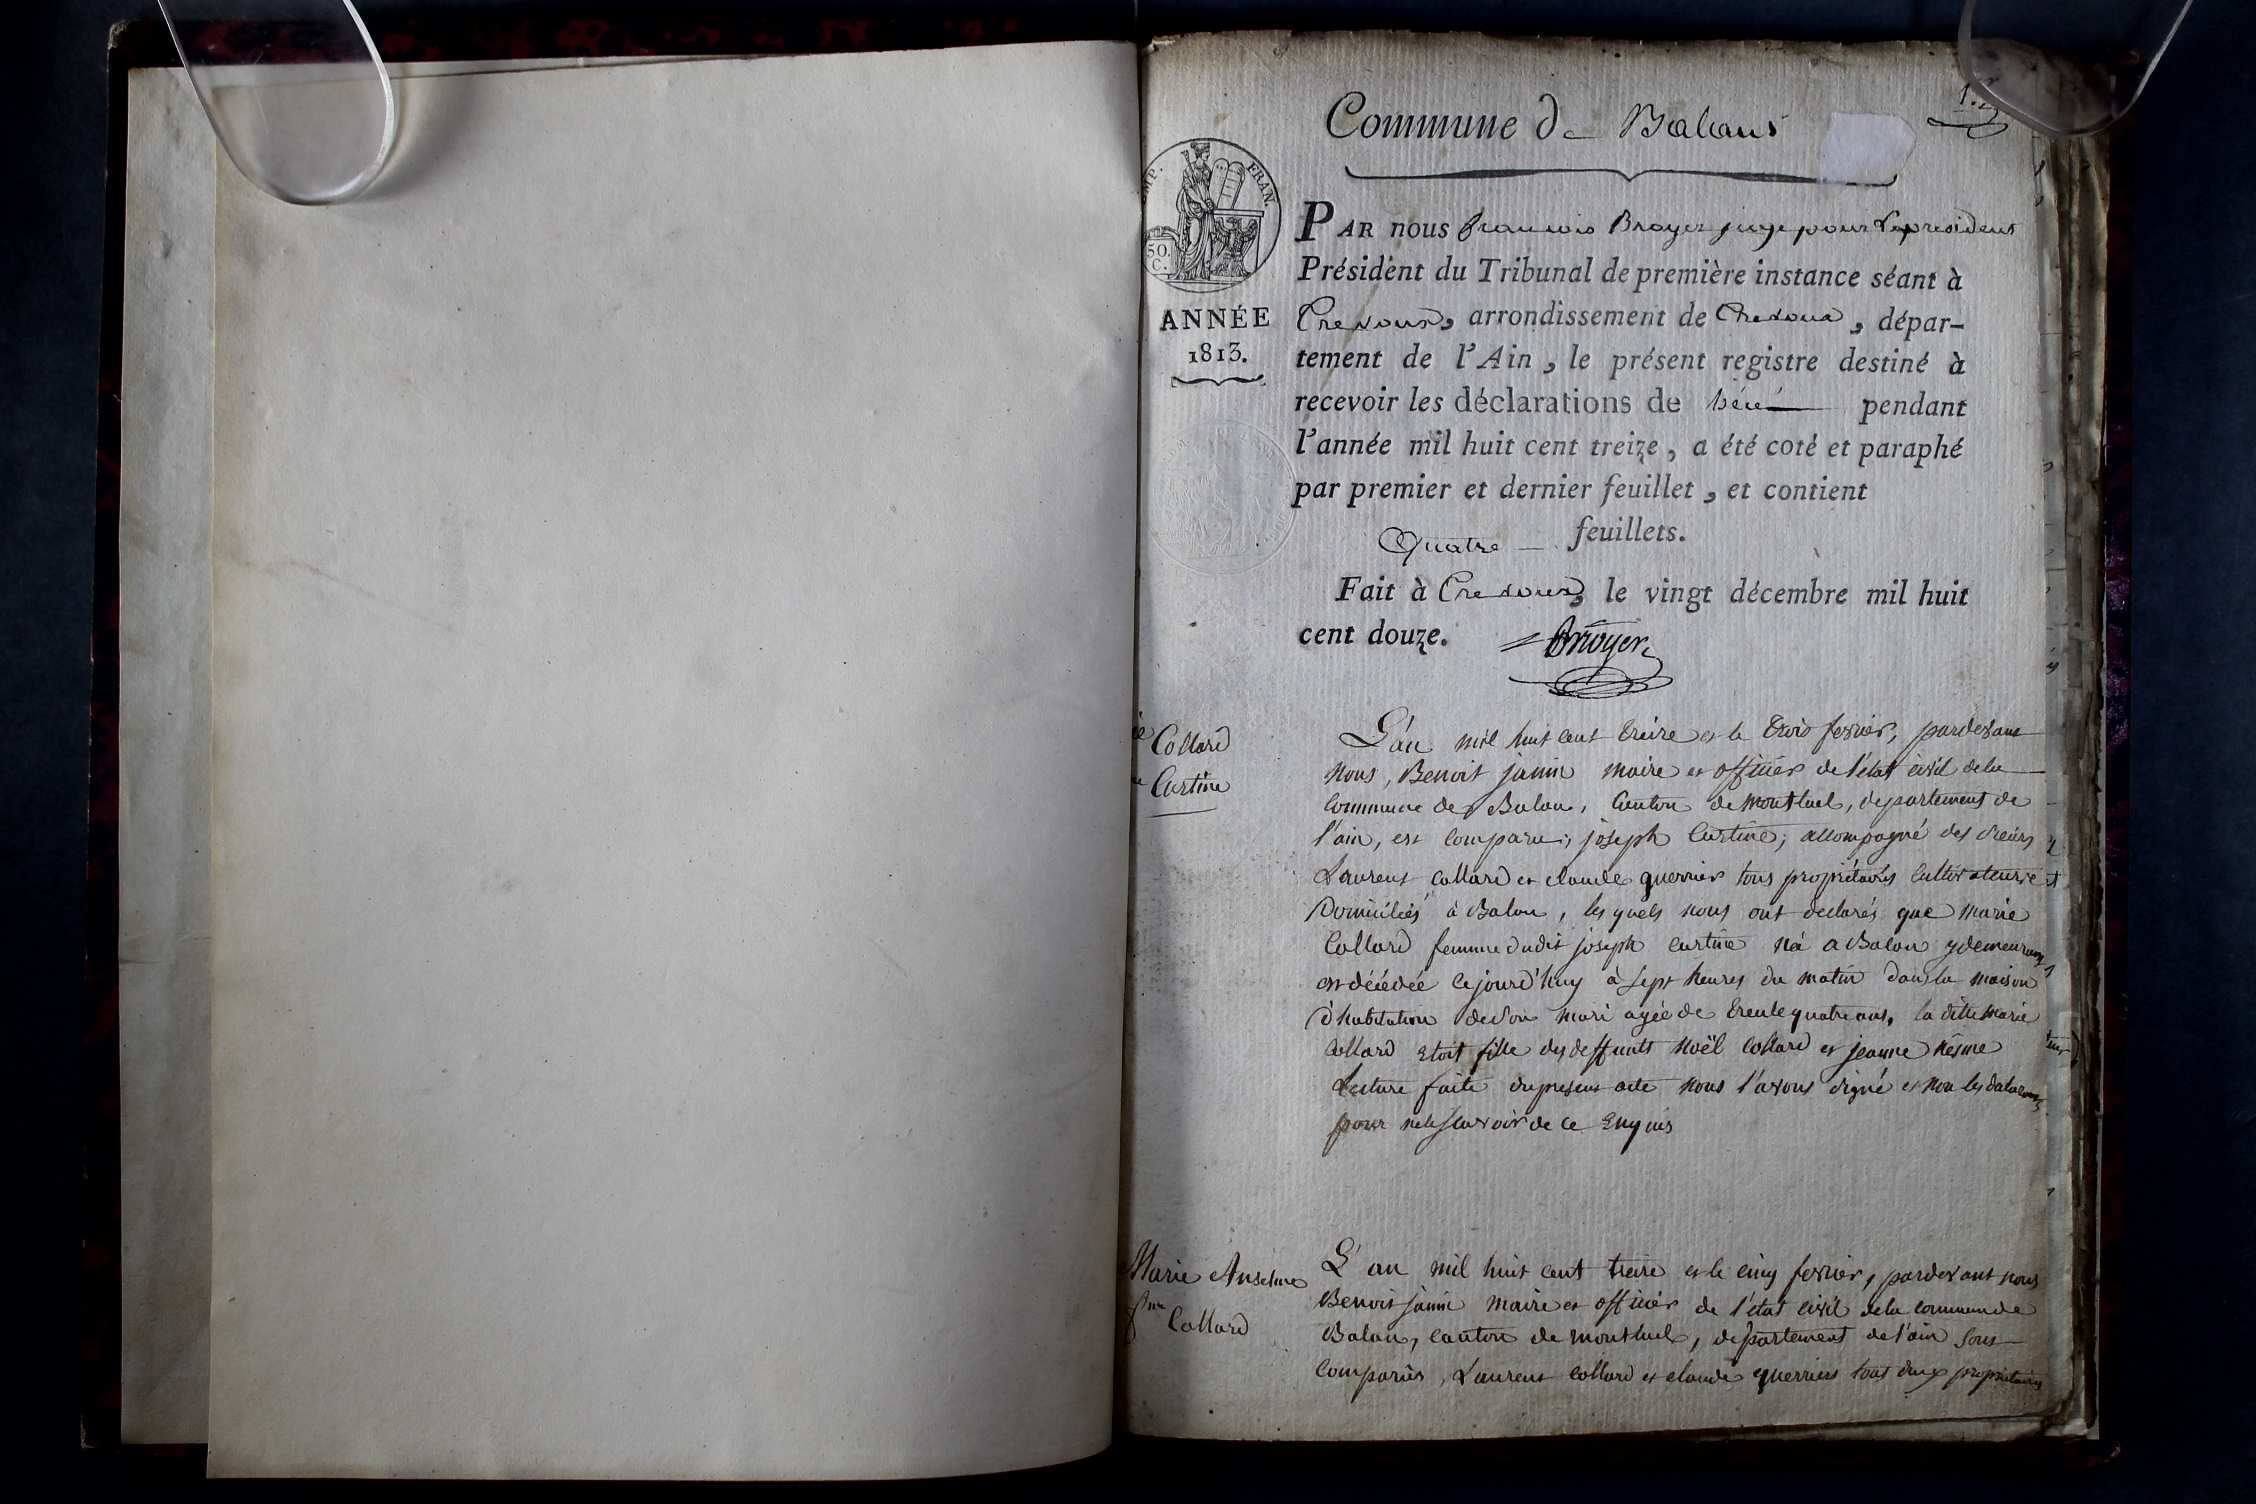 1.
Commune de Balans
IMP. FRAN.
50.
C.
PAR nous francois Broyer juge pour Le president
Président du Tribunal de première instance séant à
ANNÉE
1813.
Trevoux, arrondissement de Trevoux, dépar-
tement de l'Ain, le présent registre destiné à
recevoir les déclarations de décé pendant
l'année mil huit cent treize, a été coté et paraphé
par premier et dernier feuillet, et contient
Quatre feuillets.
Fait à Trevoux, le vingt décembre mil huit
cent douze. Broyer
Collard
Curtine
L'an mil huit cent treize et le trois fevrier, pardevant
nous, Benoit janin maire et officier de l'état civil de la
commune de Balan, canton de montluel, departement de
l'ain, est comparu; joseph Curtine; accompagné des sieurs
Laurent collard et claude guerrier tous propriétaires cultivateurs et
Domiciliés à Balan, lesquels nous ont declarés que marie
Collard femme dudit joseph curtine né a Balan y demeurant
est décédée cejourd'huy à sept heures du matin dans la maison
d'habitation de son mari agée de trente quatre ans, la ditte marie
Collard etoit fille des deffunts noël collard et jeanne nésme
Lecture faite du present acte nous l'avons signé et non les
pour ne le scavoir de ce Enquis
Marie Anselme
fme Collard
L'an mil huit cent treize et le cinq fevrier, pardevant nous
Benoit janin maire et officier de l'état civil de la commune de
Balan, canton de montluel, departement de l'ain sont
comparus, Laurent collard et claude guerriers tous deux propriétaires